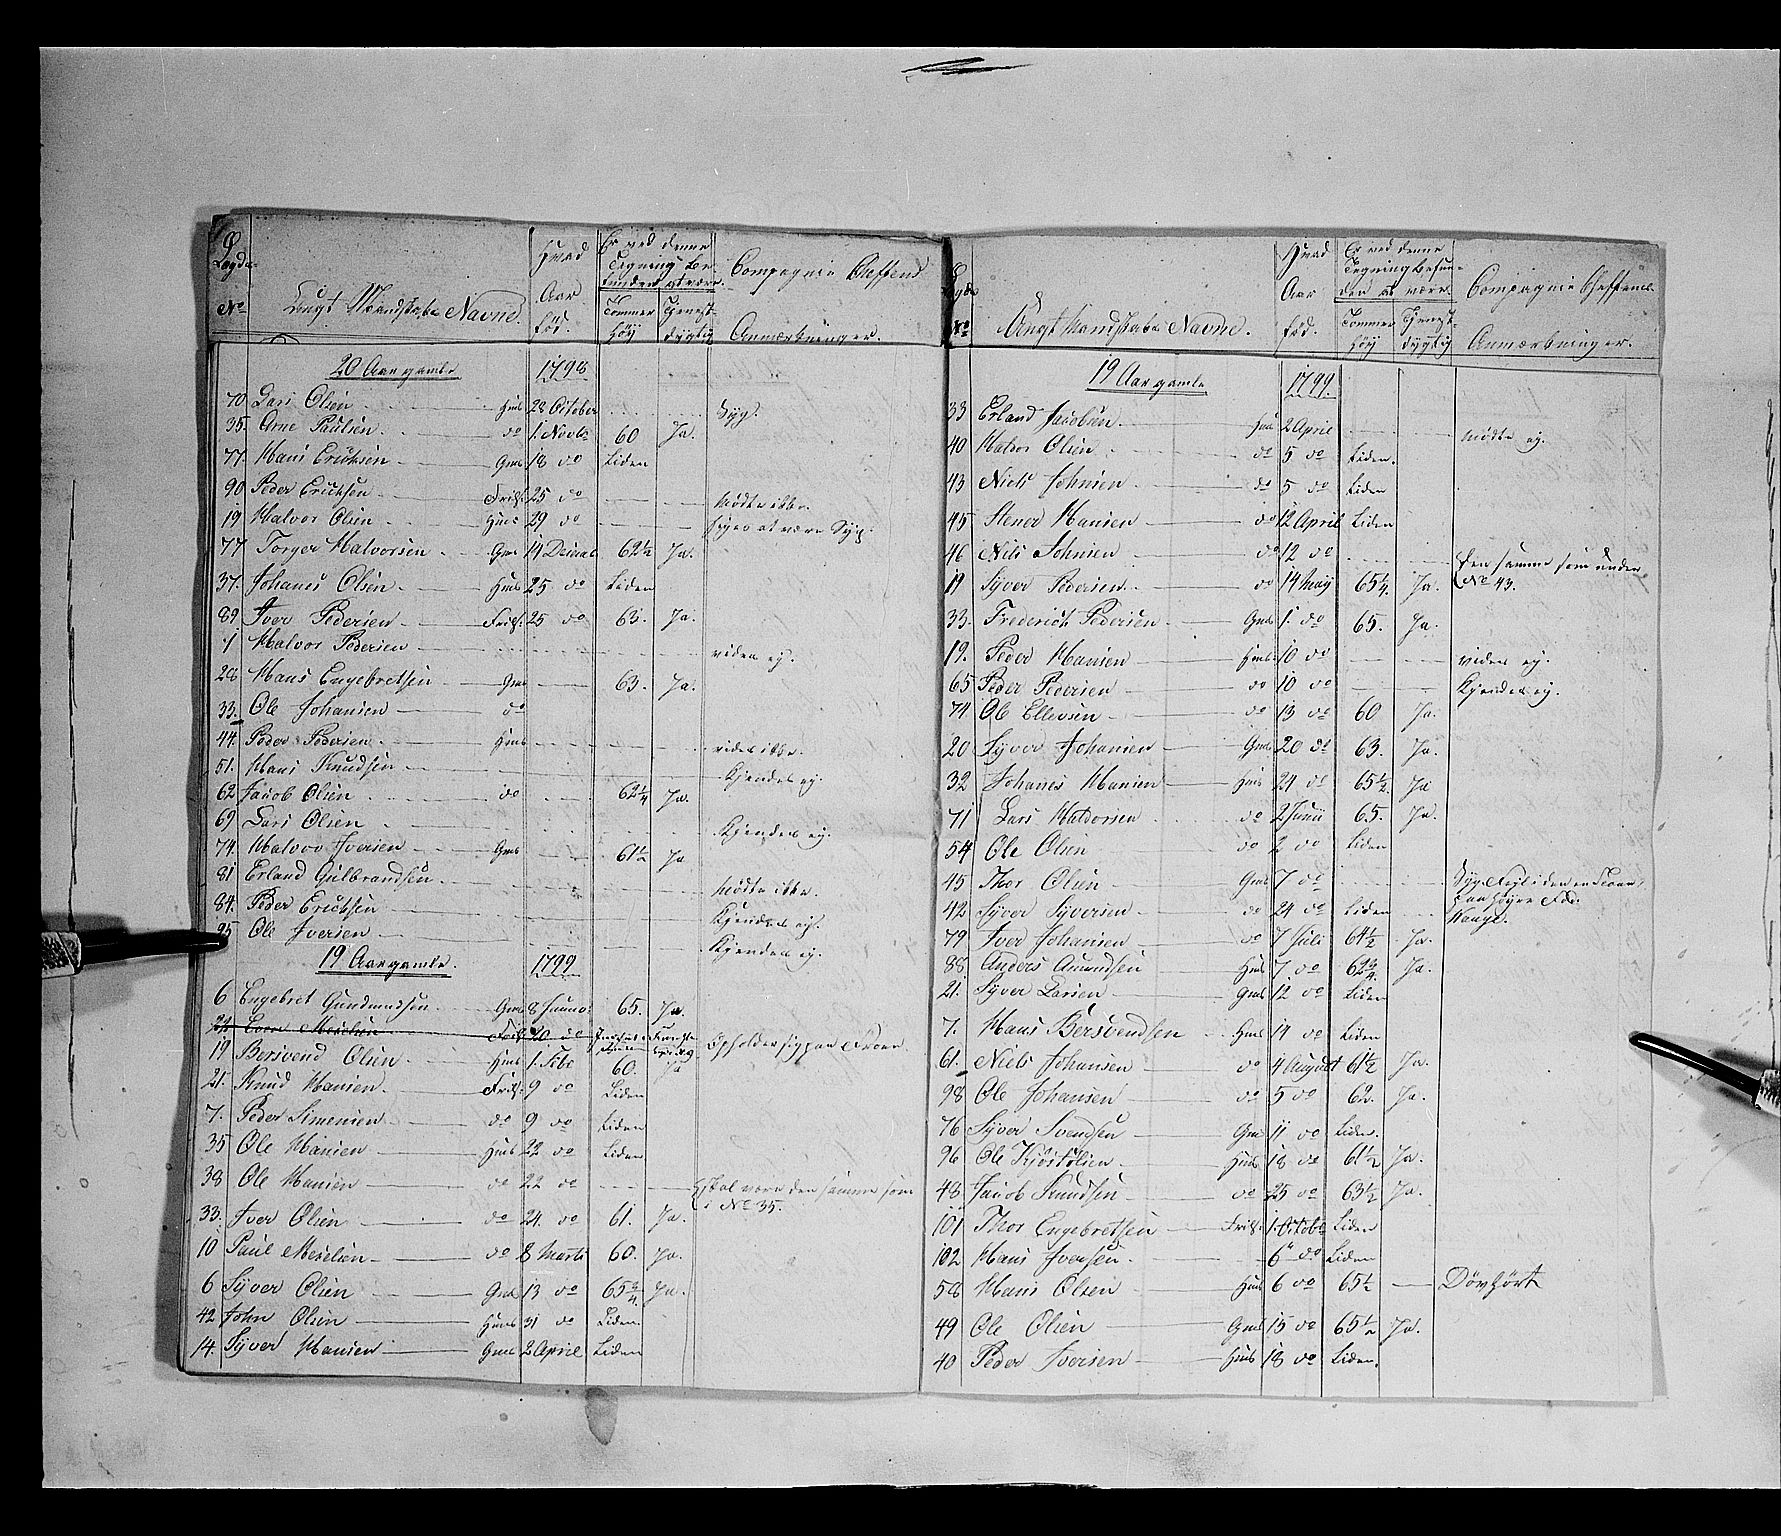 Lægds No | Ungt Mandskabs Navne. | Hvad Aar fød. | Er ved denne Tegning befunden at være. Tommer høÿ | Tjenest-dygtig | Compagnie Cheffens Anmærkninger.
20 Aar gamle 1798
70 Lars Olsen Huus 28 October Syg.
35. Arne Paulsen do 1. Novbr 60 Ja.
77. Hans Ericksen Gmd 18 do Liden
90 Peder Ericksen 25 do Mødte ikke.
19 Halvor Olsen Huus 29 do siges at være Syg.
77 Torger Halvorsen Gmd 14 62½ Ja.
37. Johanes Olsen Huus 25 do Liden
89 Iver Pedersen 25 do 63. Ja.
1 Halvor Pedersen vides ej.
28 Hans Engebretsen Gmd 63. Ja.
33. Ole Johansen do
44. Peder Pedersen Huus vides ikke.
51. Hans Knudsen Kjendes ej.
62 Jacob Olsen do 62¼ Ja.
69 Lars Olsen Kjendes ej.
74 Halvor Iversen Gmd 61½ Ja
81 Erland Gulbrandsen Mødte ikke.
84. Peder Ericksen Kjendes ej.
95 Ole Iversen Kjendes ej.
19 Aar gamle. 1799
6 Engebret Gundmundsen Gmd 8 65. Ja.
20 do Opholder sig paa
19 Bersvend Olsen Huus 1. Febr 60. Ja
21. Knud Hansen 9 do Liden
7. Peder Simensen do 9 do Liden
35 Ole Hansen Huus 22 do Liden
38 Ole Hansen do 22 do Skal være den samme som i No 35.
33. Iver Olsen do 24. do 61. Ja.
10 Paul do 8 Marts 60. Ja.
6 Syver Olsen Gmd 13 do 65¾ Ja.
42 John Olsen Huus 31 do Liden.
14. Syver Hansen Gmd 2 April Liden
Lægds No | Ungt Mandskabs Navne. | Hvad Aar fød. | Er ved denne Tegning befunden at være. Tommer høÿ | Tjenest-dygtig | Compagnie Cheffens Anmærkninger.
19 Aar gamle 1799.
33 Erland Jacobsen Huus 2 April Mødte ej.
40 Halvor Olsen do 5 do Liden.
43 Niels Johnsen do 5 do Liden
45 Stener Hansen do 12 April Liden
46 Nils Johnsen do 12 do Den samme som under No 43.
19 Syver Pedersen do 14 May 65¼ Ja.
33. Frederich Pedersen Gmd 1. do 65. Ja.
19. Peder Hansen Huus 10 do vides ej.
65 Peder Pedersen do 10 do Kjendes ej.
74 Ole Ellevsen do 13 do 60 Ja.
20 Syver Johansen Gmd 20 do 63. Ja.
32 Johanes Hansen Huus 24 do 65½ Ja
71 Lars Haldorsen do 2 Junii 65. Ja.
54 Ole Olsen do 2 do Liden
45 Thor Olsen Gmd 7 do
42 Syver Syversen do 24 do Liden
79 Iver Johansen do 7 Juli 64½ Ja.
88. Anders Amundsen Huus 7. do 62¾ Ja.
21. Syver Larsen Gmd 12 do Liden
7. Hans Bersvendsen Huus 14 do Liden
61. Niels Johansen do 4 August 61½ Ja.
98 Ole Johansen do 5 do 62. Ja.
76 Syver Svendsen Gmd 11 do Liden.
96 Ole Kjøstølsen Huus 18 do 61½ Ja.
48. Jacob Knudsen do 25 do 63½ Ja.
101 Thor Engebretsen 1. Octobr Liden
102 Hans Iversen 6 do Liden
58 Hans Olsen Huus 6 do 65½ Døvhørt
49 Ole Olsen Gmd 15 do 65½ Ja.
40 Peder Iversen Huus 18 do Liden.